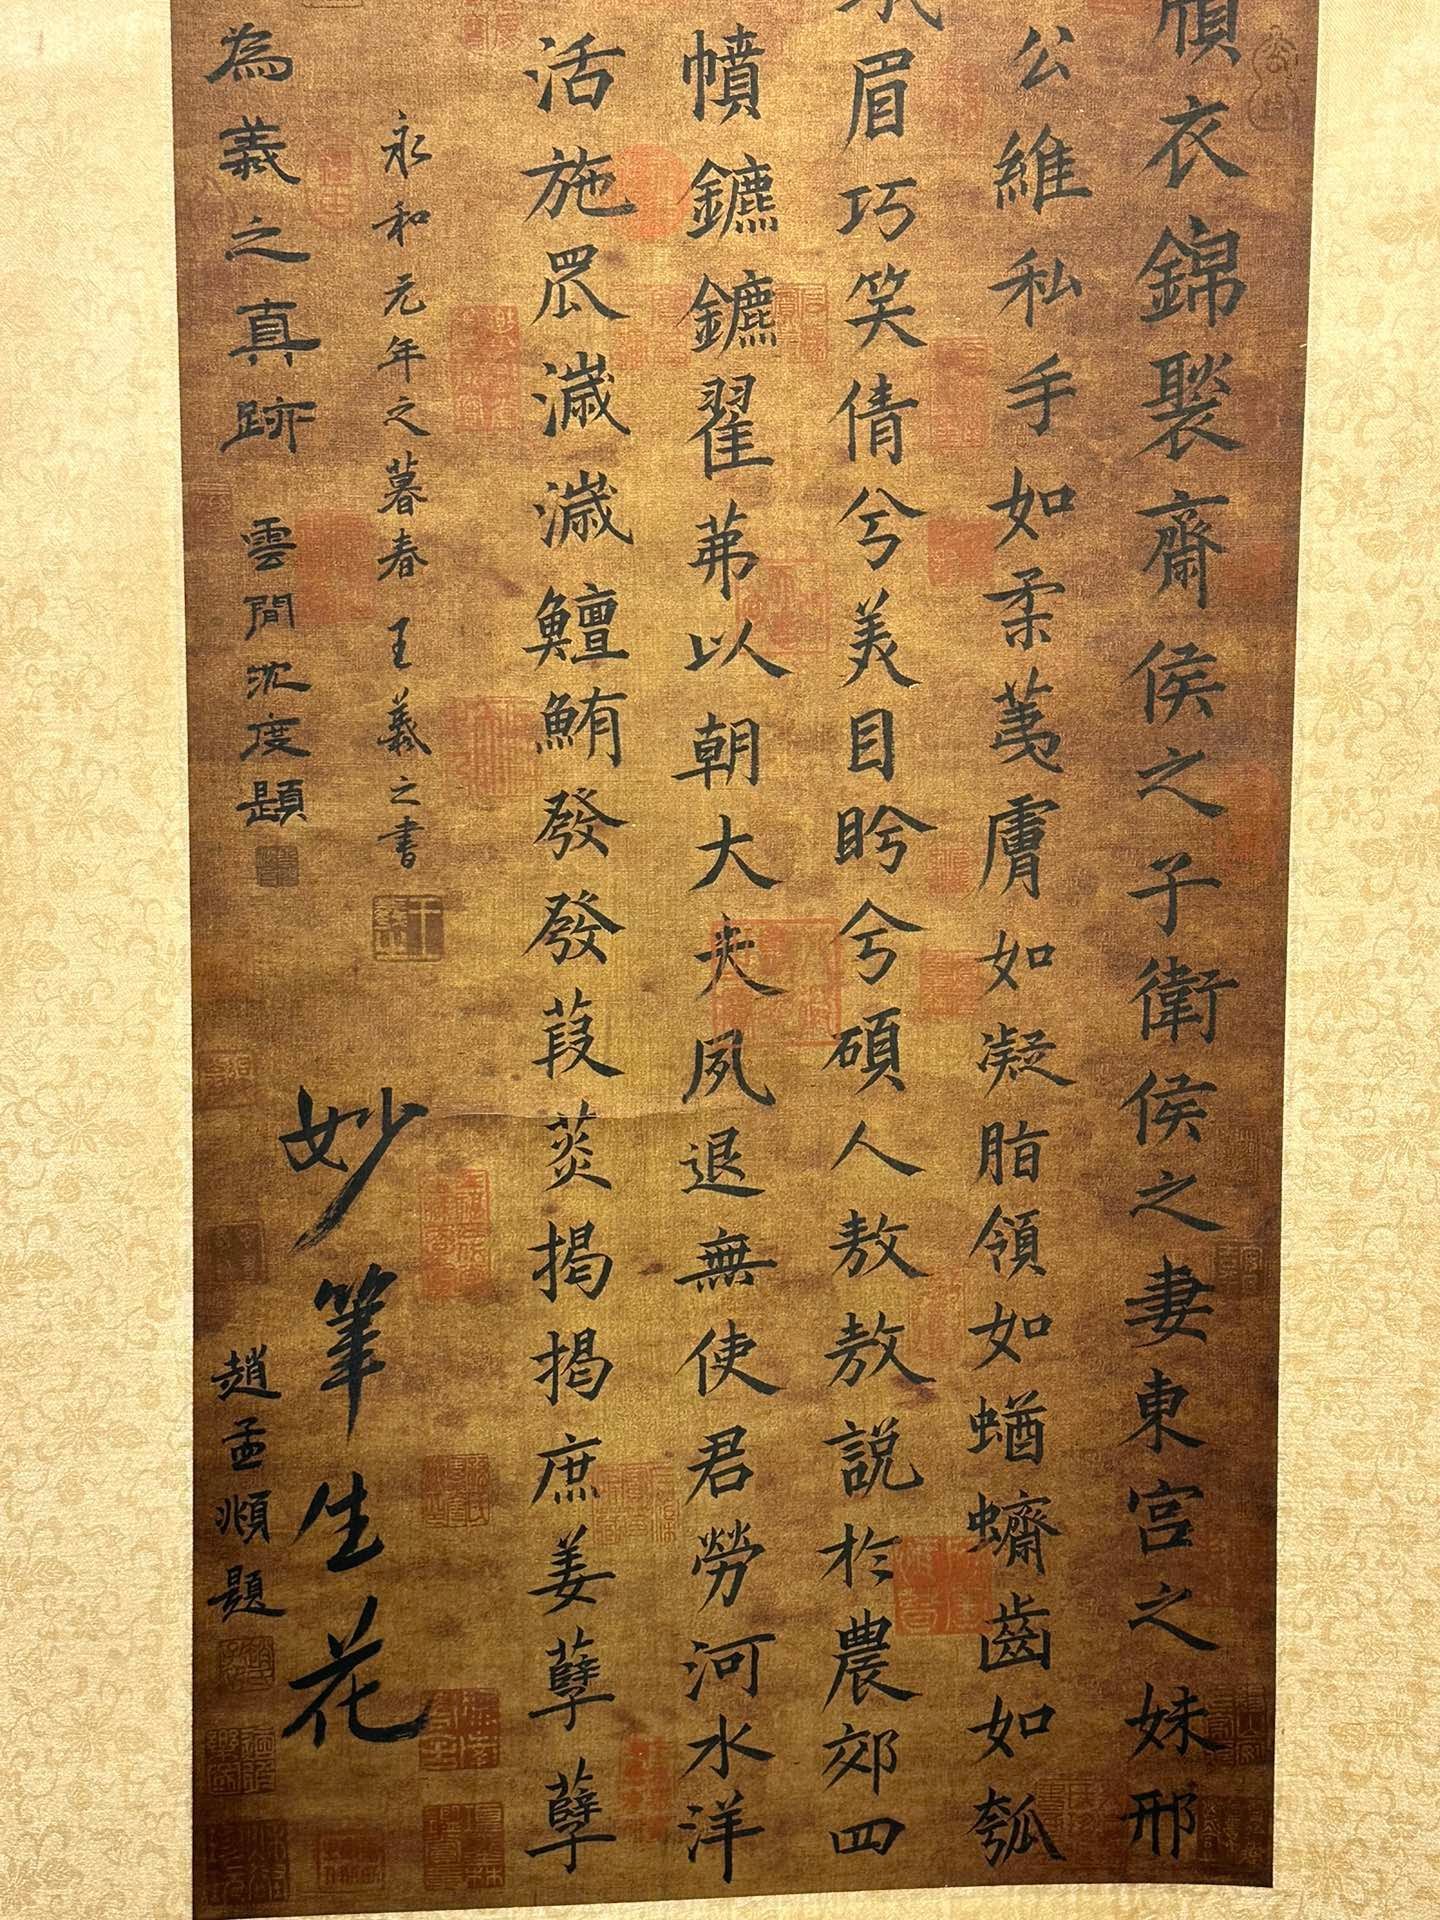 頎衣錦褧齊侯之子衛侯之妻東宮之妹邢
公維私手如柔荑膚如凝脂領如蝤蠐齒如瓠
眉巧笑倩兮美目盻兮碩人敖敖說於農郊四
幘鑣鑣翟茀以朝大夫夙退無使君勞河水洋
活施罛濊濊鱣鮪發發葭菼揭揭庶姜孽孽
永和元年之暮春王羲之書
為羲之真跡
雲間沈度題
妙筆生花
趙孟頫題